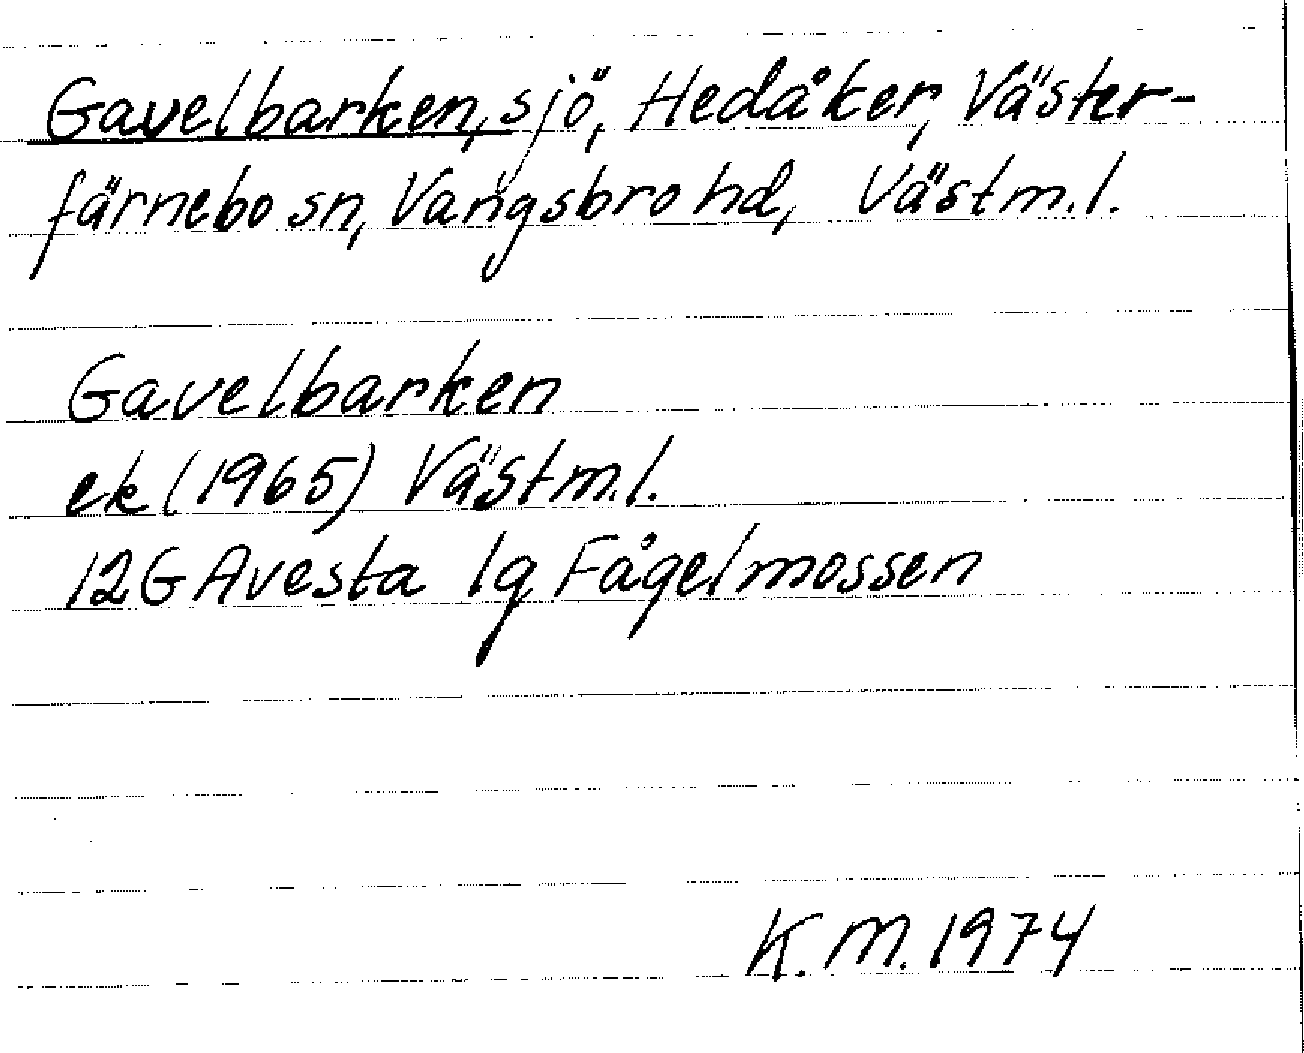 Gavelbarken, sjö, Hedåker, Väster-
färnebo sn, Vangsbro hd, Västm.l.
Gavelbarken
ek (1965) Västm.l.
12G Avesta lg Fågelmossen
K.M. 1974